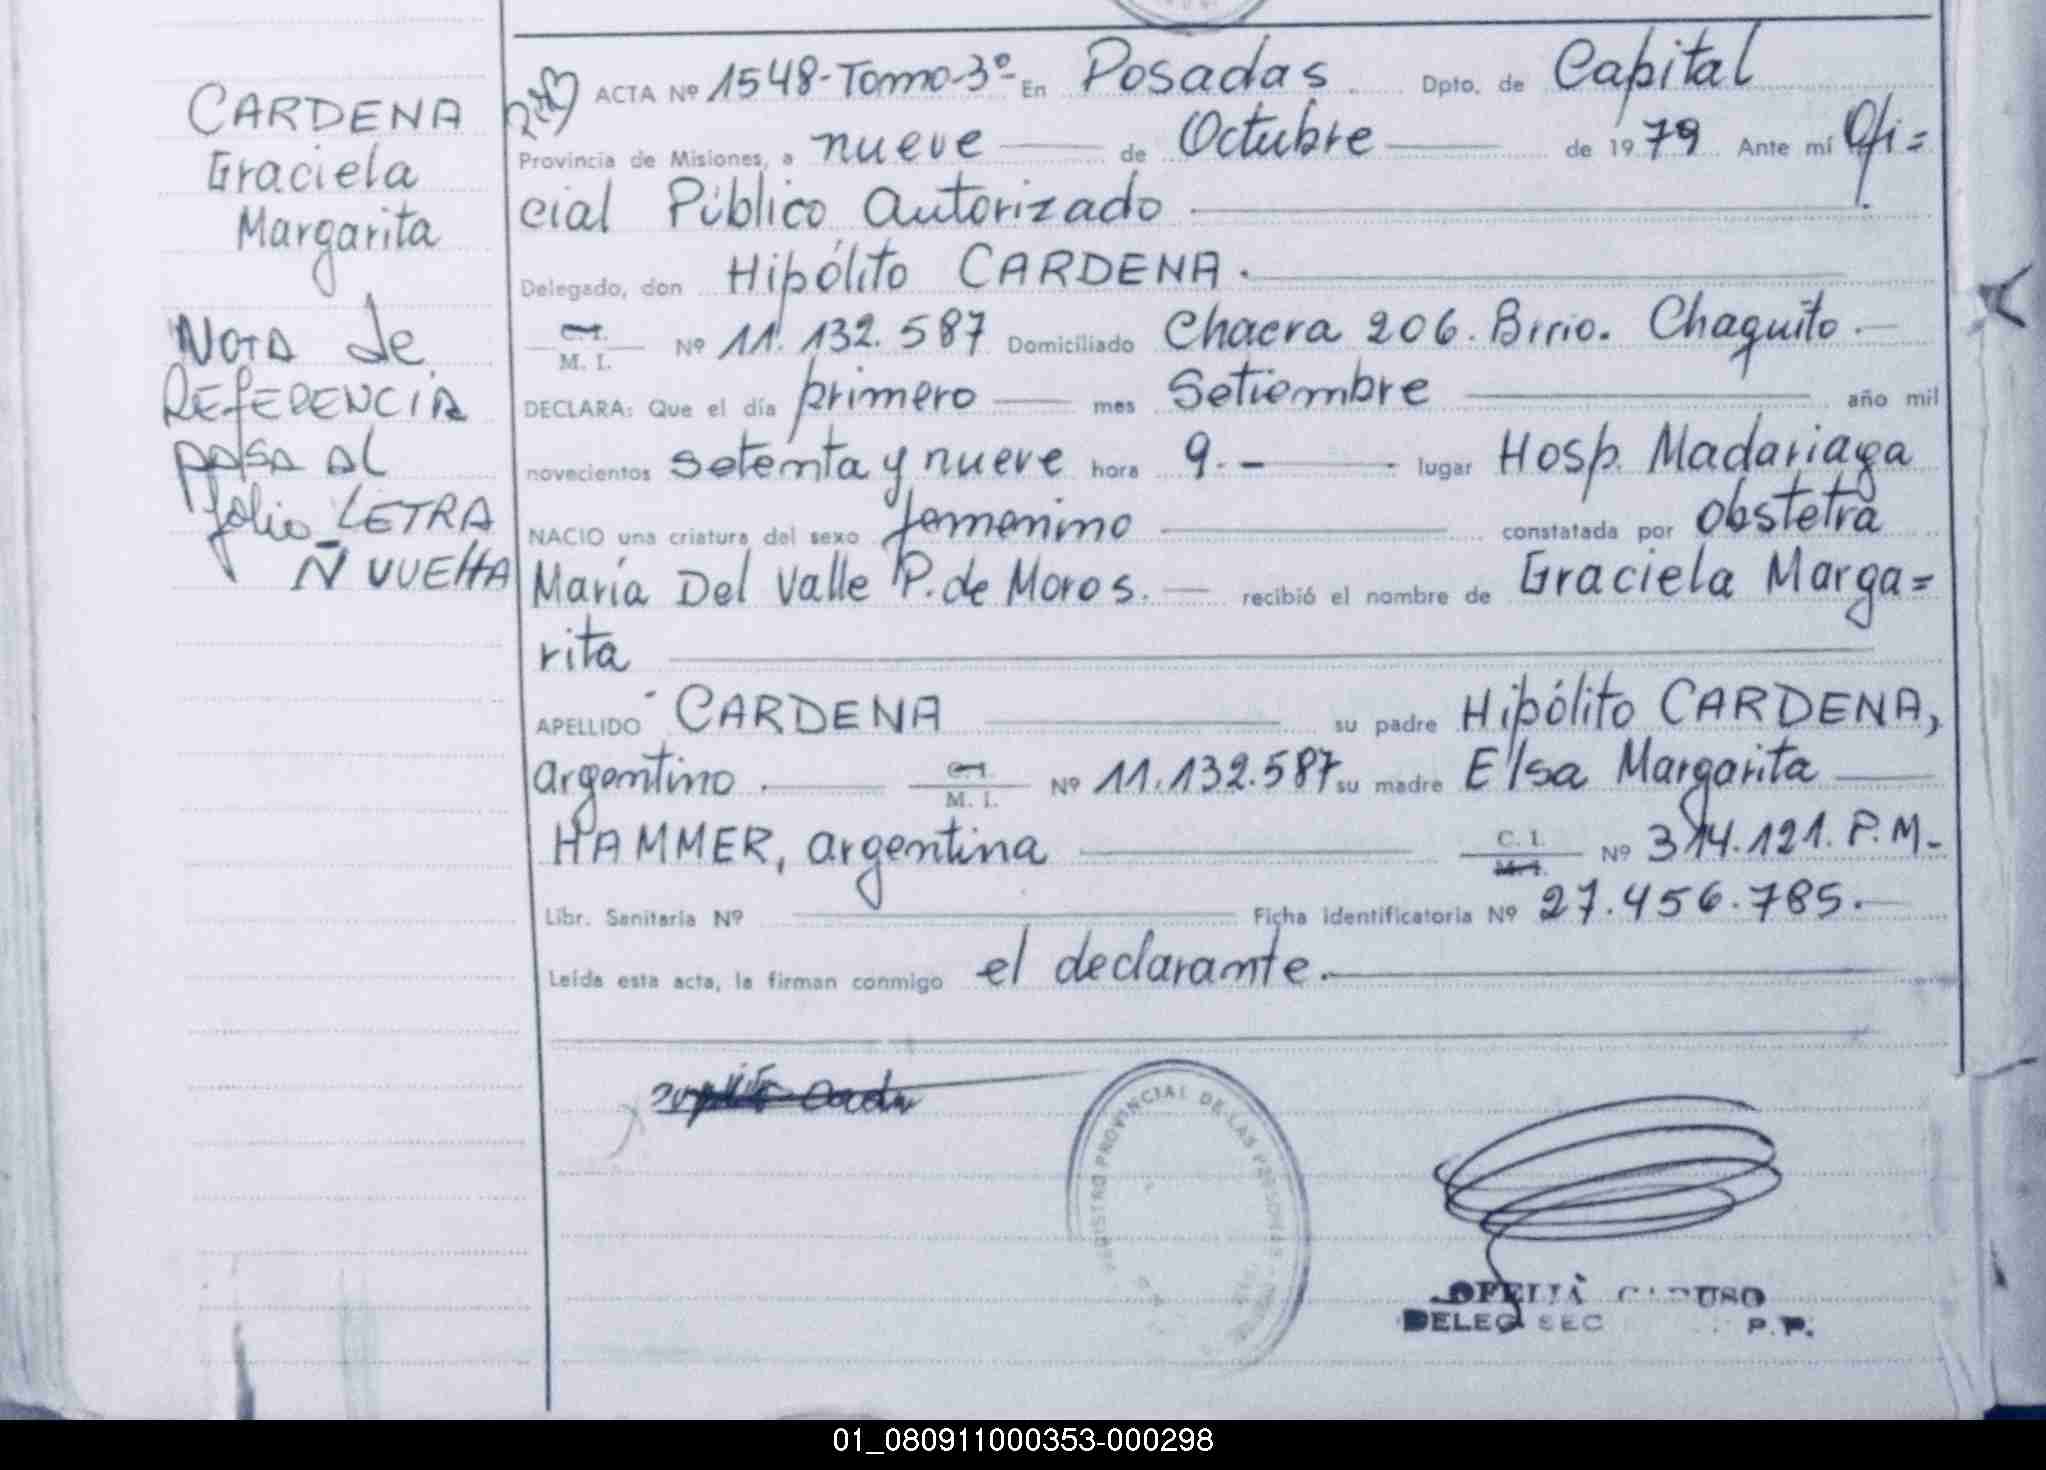 CARDENA
Graciela
Margarita
NOTA de
REFERENCIA
PASA AL
folio LETRA
Ñ VUELTA
ACTA Nº 1548-Tomo-3º- En Posadas Dpto. de Capital
Provincia de Misiones, a nueve de Octubre de 1979 Ante mí Ofi=
cial Público Autorizado
Delegado, don Hipólito CARDENA.
C.I.
M. I. Nº 11.132.587 Domiciliado Chacra 206. Brrio. Chaquito.
DECLARA: Que el día primero mes Setiembre año mil
novecientos setenta y nueve hora 9.- lugar Hosp. Madariaga
NACIO una criatura del sexo femenino constatada por obstetra
María Del Valle P. de Moros. recibió el nombre de Graciela Marga=
rita
APELLIDO CARDENA su padre Hipólito CARDENA,
argentino C.I.
M. I. Nº 11.132.587 su madre Elsa Margarita
HAMMER, argentina C. I.
M. I. Nº 314.121. P.M.-
Libr. Sanitaria Nº Ficha identificatoria Nº 27.456.785.
Leída esta acta, la firman conmigo el declarante.
REGISTRO PROVINCIAL DE LAS PERSONAS
OFELIA CARUSO
DELEG SEC P.P.
01_080911000353-000298